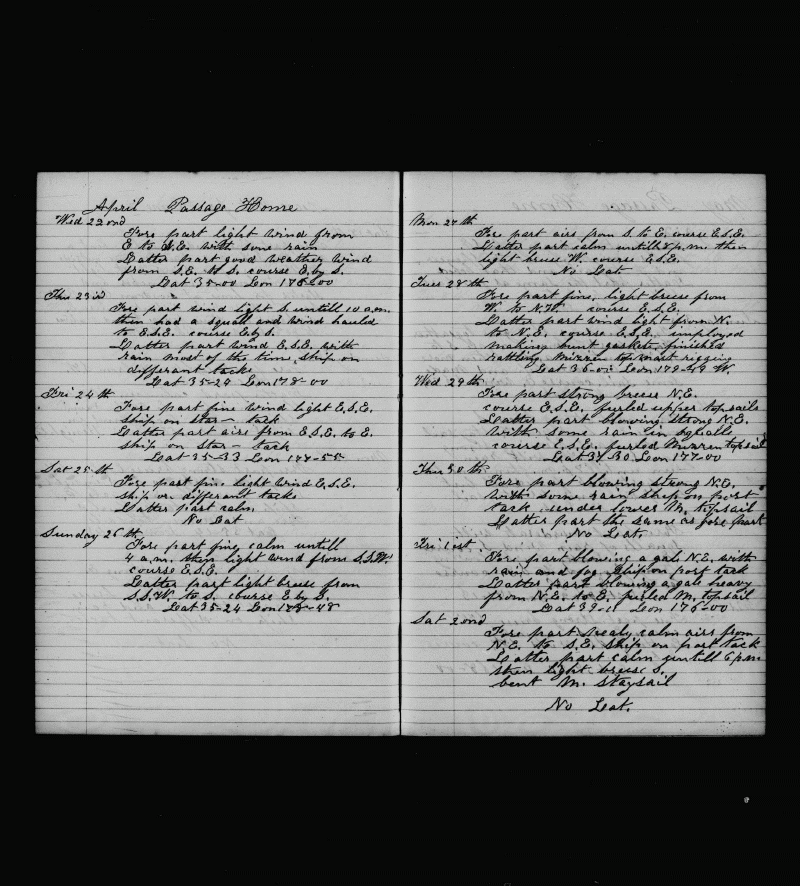 April Passage Home
Wed 22nd
Fore part light wind from
E to S.E. with some rain
Latter part good weather wind
from S.E. to S. course E. by S.
Lat 35-00 Lon 176-00
Thu 23rd
Fore part wind light S. untill 10 a.m.
then had a squall and wind hauled
to E.S.E. course E by S.
Latter part wind E.S.E. with
rain most of the time, ship on
differant tacks
Lat 35-24 Lon 178-00
Fri 24th
Fore part fine wind light E.S.E.
ship on star- tack
Latter part airs from E.S.E. to E.
ship on Star- tack
Lat 35-33 Lon 178-55
Sat 25th
Fore part fine light wind E.S.E.
ship on differant tacks
Latter part calm
No Lat
Sunday 26th
Fore part fine, calm untill
4 a.m. then light wind from S.S.W.
course E.S.E.
Latter part light breese from
S.S.W. to S. course E by S.
Lat 35-24 Lon 178-48
Mon 27th
Fore part airs from S. to E. course E.S.E.
Latter part calm untill 8 p.m. then
light breese W. course E.S.E.
No Lat.
Tues 28th
Fore part fine, light breese from
W. to N.W. course E.S.E.
Latter part wind light from N.
to N.E. course E.S.E. imployed
making bunt gaskets finished
rattling mizzen topmast rigging
Lat 36-01 Lon 179-49 W.
Wed 29th
Fore part strong breese N.E.
course E.S.E. furled upper topsails
Latter part blowing strong N.E.
with some rain in squalls
course E.S.E. furled Mizzen topsail
Lat 37-30 Lon 177-00
Thus 30th
Fore part blowing strong N.E.
with some rain ship on port
tack under lower M. topsail
Latter part the same as fore part
No Lat.
Fri 1st
Fore part blowing a gale N.E. with
rain and fog ship on port tack
Latter part blowing a gale heavy
from N.E. to E. furled M. topsail
Lat 39-11 Lon 176-00
Sat 2ond
Fore part nealy calm airs from
N.E. to S.E. ship on port tack
Latter part calm untill 6 p.m.
then light breese S.
bent M. staysail
No Lat.